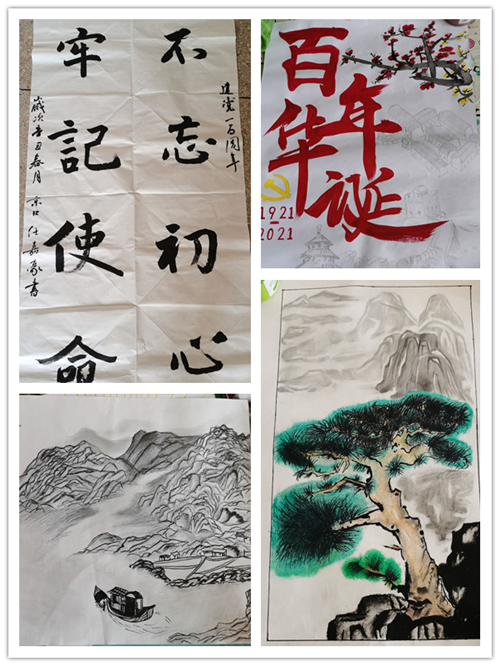 建党一百周年
不忘初心
牢記使命
歲次辛丑春月 京口任嘉豪書
百年
华诞
1921
-
2021